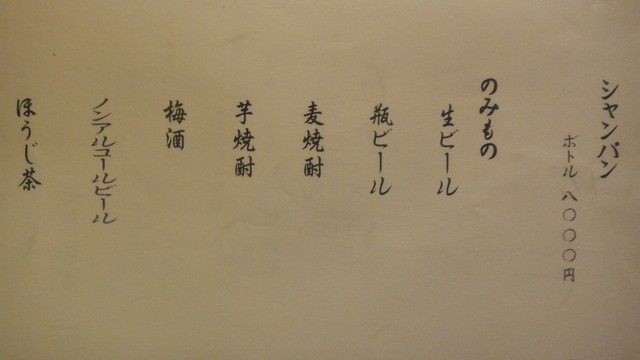 シャンパン
ボトル 八〇〇〇円
のみもの
生ビール
瓶ビール
麦焼酎
芋焼酎
梅酒
ノンアルコールビール
ほうじ茶